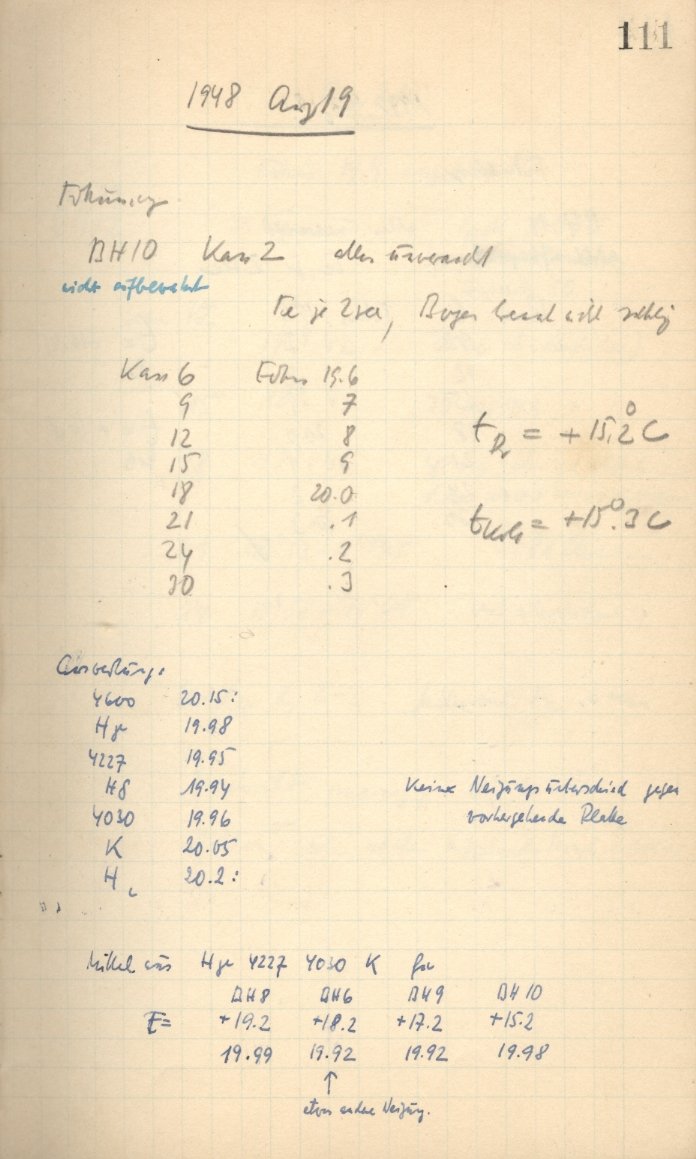 111
1948 Aug 19
Fokussierung
BH10 Kass 2 alles unversucht
nicht aufbewahrt
Fe je 2 sec, Bogen brennt nicht ruhig
Kass 6 Fokus 19.6
9 7
12 8
15 9
18 20.0
21 .1
24 .2
30 .3
t Pr = +15.2° C
t Koll = +15°.3 C
Auswertung:
4600 20.15:
Hγ 19.98
4227 19.95
Hδ 19.94
4030 19.96
K 20.05
H 20.2:
Keine Neigungsunterschied gegen
vorhergehende Platte
Mittel aus Hγ 4227 4030 K für
BH8 BH6 BH9 BH10
t= +19.2 +18.2 +17.2 +15.2
19.99 19.92 19.92 19.98
↑
etwas andere Neigung.